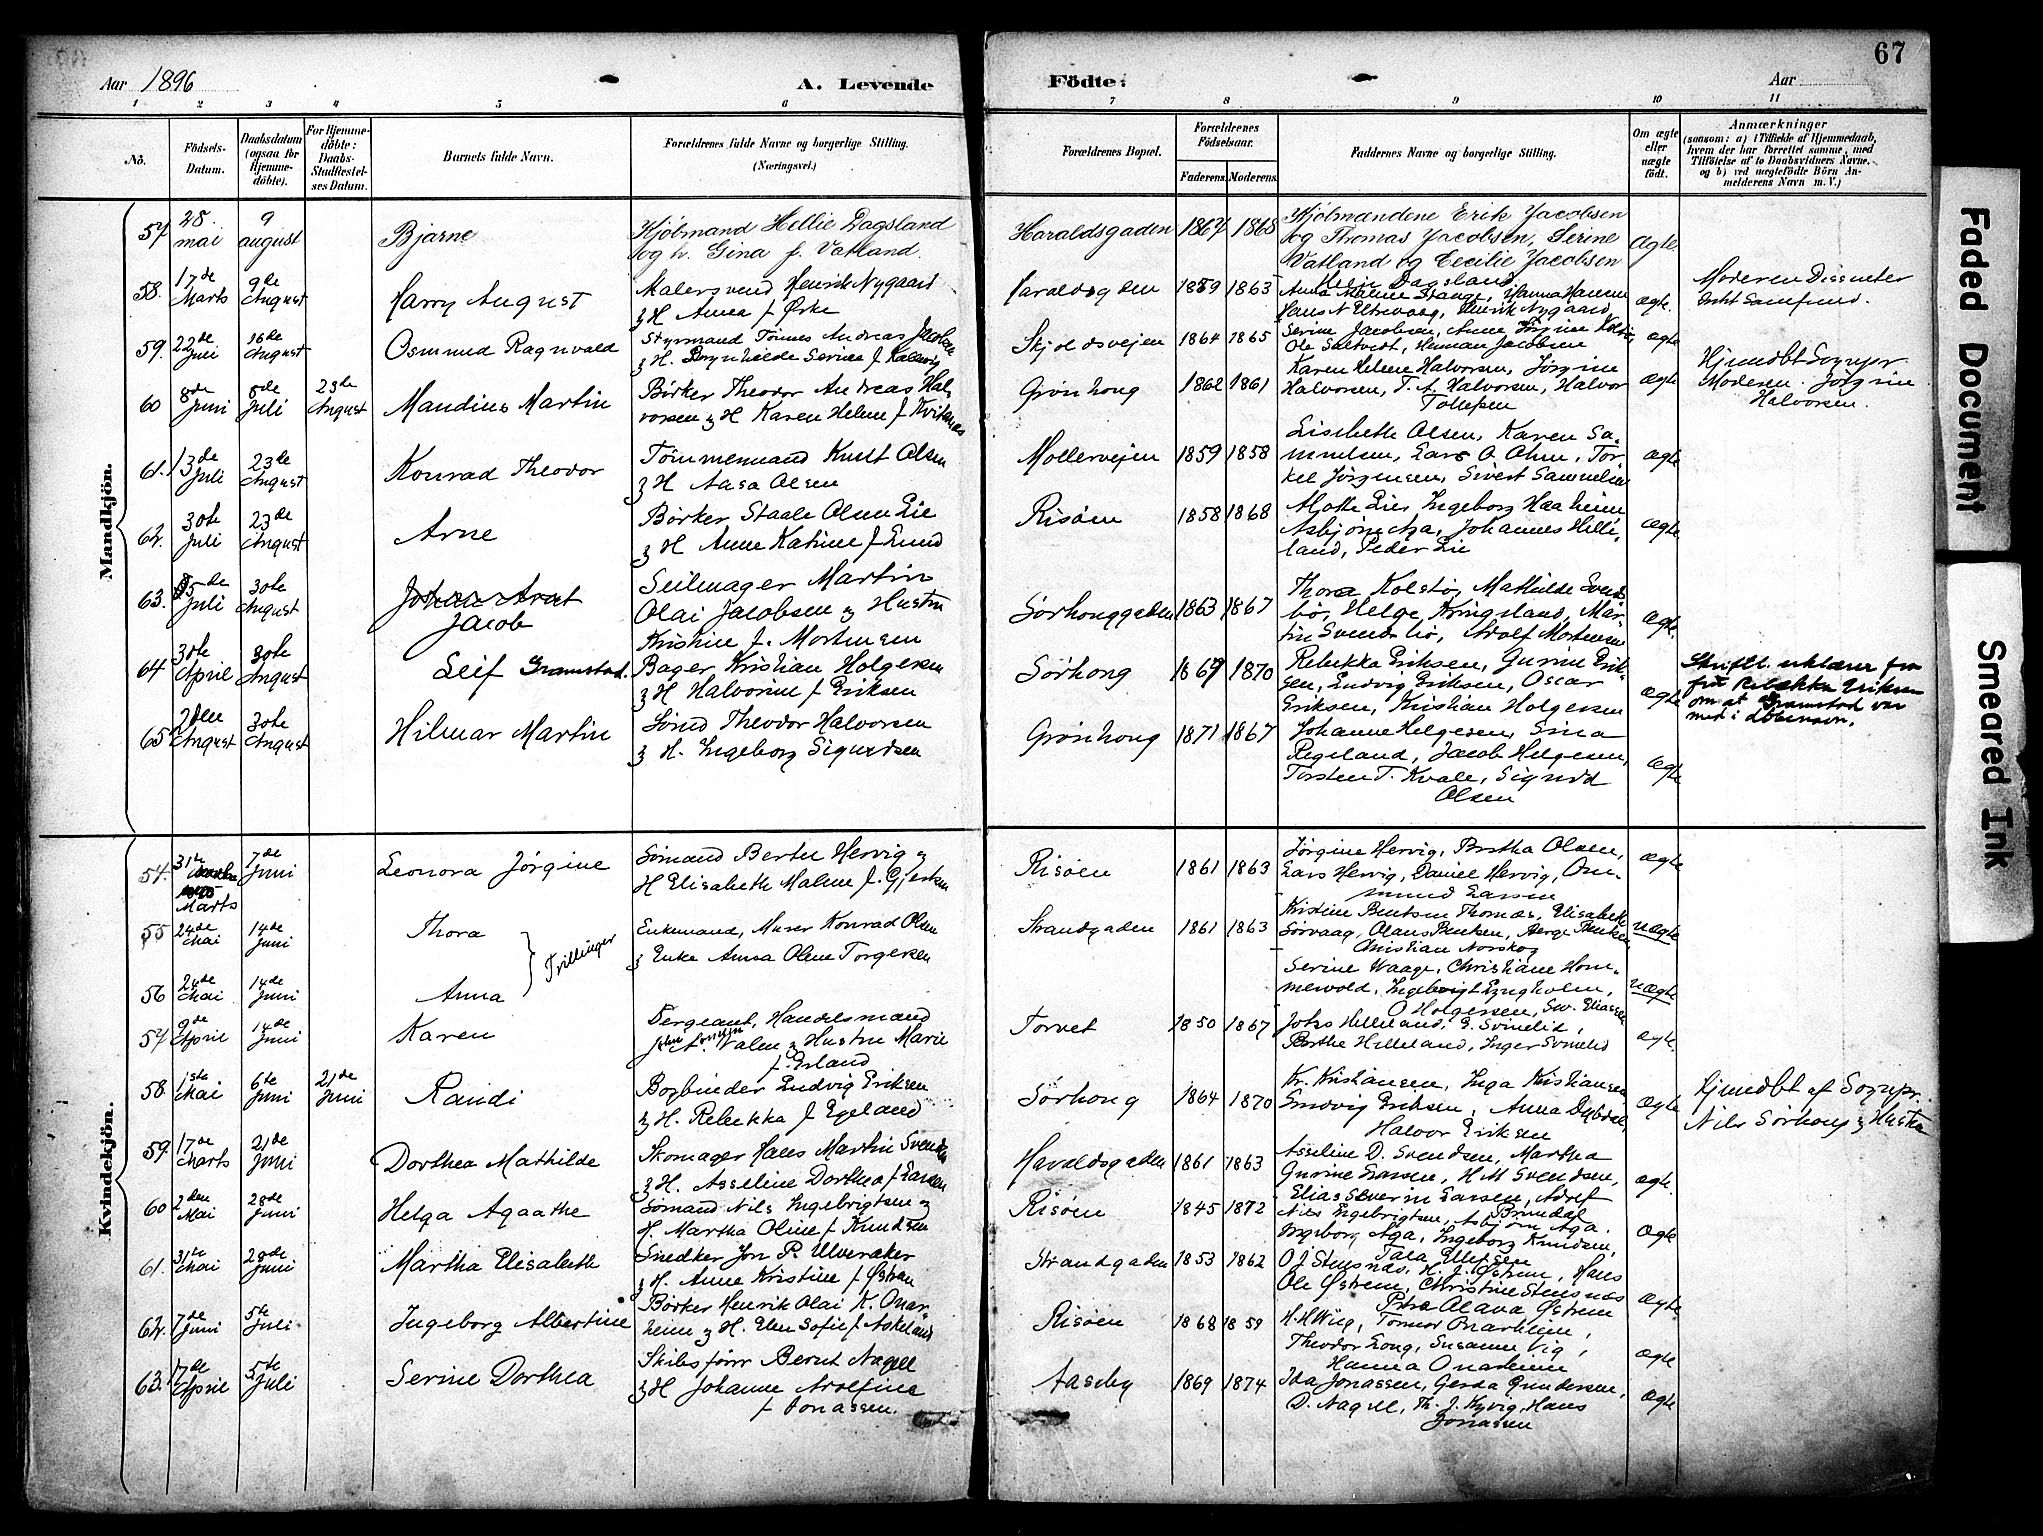 67
Aar 1896
A. Levende
Födte:
Aar
1 2 3 4 5 6 7 8 9 10 11
No.
Födsels-Datum.
Daabsdatum (ogsaa for Hjemme-döbte).
For Hjemme-döbte: Daabs-Stadfæstel-ses Datum.
Barnets fulde Navn.
Forældrenes fulde Navne og borgerlige Stilling.
(Næringsvei.)
Forældrenes Bopæl.
Forældrenes Födselsaar.
Faderens. Moderens.
Faddernes Navne og borgerlige Stilling.
Om ægte eller uægte födt.
Anmærkninger
(saasom: a) i Tilfælde af Hjemmedaab,
hvem der har forrettet samme, med
Tilföielse af to Daabsvidners Navne,
og b) ved uægtefödte Börn An-
melderens Navn m. V.)
Mandkjön.
57 28. mai 9 august Bjarne Kjöbmand Hellie Dagsland og h. Gina f. Vatland. Haraldsgaden 1867 1868 Kjöbmændene Erik Jacobsen og Thomas Jacobsen, Serine Vatland og Cecilie Jacobsen ægte
58. 17de Marts 9de August Harry August Malersvend Henrik Nygaard & H Anna f Ørke Haraldsgden 1859 1863 Hanna Hansen Henrik Nygaard ægte. Moderen Dissenter
59. 22de Juli 16de August Osmund Ragnvald Styrmand Tønnes Andreas Jacobsen & H. Serine f. Haraldsvejen 1864 1865 Serine Jacobsen, Anne Jörgine Ole Saltvedt, Herman Jacobsen ægte
60 8de Juni 8de Juli 23de August Mandius Martin Börker Theodor Andreas Halvorsen & H Karen Helene f Kvitnes Grønhoug 1862 1861 Karen Helene Halvorsen, Jørgine Halvorsen, T. A. Halvorsen, Halvor Tollefsen ægte Hjemdbt Sognepr. Moderen. Jörgine Halvorsen.
61. 13de Juli 23de August Konrad Theodor Tömmermand Knut Olsen & H Aasa Olsen Møllervejen 1859 1858 Lisebeth Olsen, Karen Samuelsen, Lars O Olsen, Torkel Jørgensen, Sivert Samuelsen ægte
62. 30te Juli 23de August Arne Børker Staale Olsen Lie & H Anne Katrine f Lund Risøen 1858 1868 Lie, Ingeborg Haaheim Asbjørn Aga, Johannes Helleland, Peder Lie ægte
63. Juli 30te August Jacob Seilmager Martin Olai Jacobsen & Hustru Kristine f. Mortensen Sørhouggaden 1863 1867 Thora Kolstø, Mathilde Svendsbø, Helge Kringeland, Martin Svendsbø, Adolf Mortensen ægte.
64 30te April 30te August Leif Gramstad. Bager Kristian Holgersen & H Halvorine f Eriksen Sørhoug 1869 1870 Rebekka Eriksen, Gurine Eriksen, Ludvig Eriksen, Oscar Eriksen, Kristian Holgersen ægte Skriftl. erklæring fra fru Rebekka Eriksen om at Gramstad var med i döbenavn.
65 August 30te August Hilmar Martin Sömd Theodor Halvorsen & H. Ingeborg Sigurdsen Grønhoug 1871 1867 Johanne Helgesen, Sina Regeland, Jacob Helgesen, Torsten T. Kvale, Sigurd Olsen ægte
Kvindekjön.
54. 31te Marts 7de Juni Leonora Jörgine Sömand Bertu Hervig & H Elisabeth Malene f. Gjertsen Risøen 1861 1863 Jörgine Hervig, Bertha Olsen, Lars Hervig, Daniel Hervig, Ommund Larsen ægte
55 24de Mai 14de Juni Thora Enkemand, Murer Konrad Olsen & Enke Anna Oline Torgersen Strandgaden 1861 1863 Kristine Bentsen Thomas, Elisabeth Sørvaag, Olaus Bentsen, Aarge Bentsen, Christian Norskog uægte
Tvillinger
56 24de Mai 14de Juni Anna Serine Waage, Christiane Hommervold, Ingebrigt Lyngholm, O Holgersen, Sev. Eliassen uægte
57 9de April 14de Juni Karen Sergeant, Handelsmand Valen & Hustru Marie f. Erland Torvet 1850 1867 Johs Helleland, E. Svineli, Berthe Helleland, Inger Svinelid ægte.
58. 1ste Mai 6te Juni 21de Juni Randi Bogbinder Ludvig Eriksen & H. Rebekka f Egeland Sørhoug 1864 1870 Kr. Kristiansen, Inga Kristiansen Ludvig Eriksen, Anna Dybdal, Halvor Eriksen ægte Hjemdbt af Sognepr. Nils Sørhoug & Hustru
59. 17de Marts 21de Juni Dorthea Mathilde Skomager Hans Martin Svendsen & H. Asseline Dorthea f Larsen Haraldsgaden 1861 1863 Asseline D. Svendsen, Martha Gurine Larsen, H M Svendsen, Elias Severin Larsen, Adolf Brundal ægte.
60 2den Mai 28de Juni Helga Agaathe Sömand Nils Ingebrigtsen & H. Martha Oline f Knudsen Risøen 1845 1872 Nils Ingebrigtsen, Asbjørn Aga. Ingeborg Aga, Ingeborg Knudsen, Tala Ellefsen ægte
61. 31te Mai 28de Juni Martha Elisabeth Snedker Jon P. Ulveraker & H. Anne Kristine f Østrem Strandgaden 1853 1862 O J Stensnæs, H. J. Østrem, Hans Ole Østrem, Christine Stensnæs Petra Olava Østrem ægte
62. 7de Juni 5te Juli Ingeborg Albertine Børker Henrik Olai K. Onarheim & H. Elen Sofie f Askeland Risøen 1868 1859 H. H Wiig, Tormod Onarheim, Theodor Long, Susanne Vig, Hanna Onarheim ægte
63. 17de April 5te Juli Serine Dorthea Skibsförer Bernt Nagell & H Johanne Adolfine f Jonassen. Aaseby 1869 1874 Ida Jonassen, Gerda Gundersen, D. Nagell, Th. J. Kyvig, Hans Jonassen ægte
Faded Document
Smeared Ink